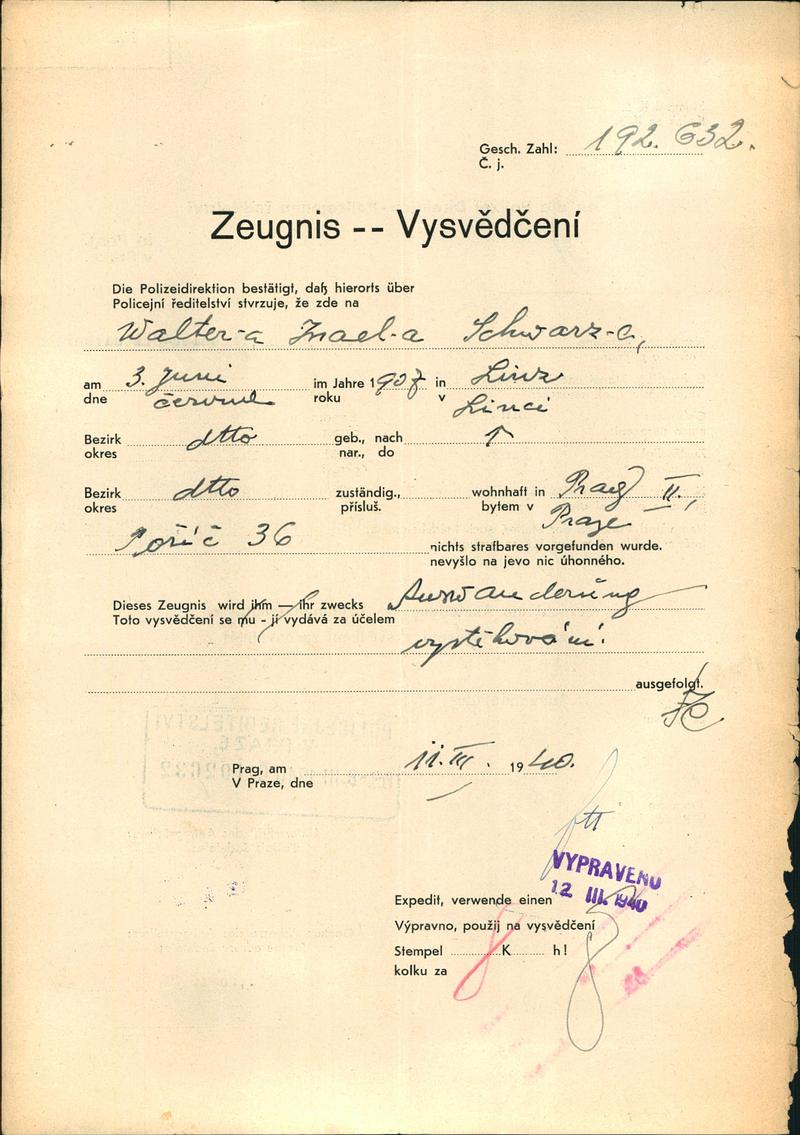 Gesch. Zahl: 192.632.
Č. j.
Zeugnis -- Vysvědčení
Die Polizeidirektion bestätigt, daß hierorts über
Policejní ředitelství stvrzuje, že zde na
Walter-a Israel-a Schwarz-e,
am 3. Juni im Jahre 1907 in Linz
dne června roku v Linci
Bezirk dtto geb., nach
okres nar., do
Bezirk dtto zuständig., wohnhaft in Prag II.,
okres přísluš. bytem v Praze
Poříč 36 nichts strafbares vorgefunden wurde.
nevyšlo na jevo nic úhonného.
Dieses Zeugnis wird ihm — ihr zwecks Auswanderung
Toto vysvědčení se mu - jí vydává za účelem
vystěhování.
ausgefolgt.
Prag, am 11. III. 1940.
V Praze, dne
VYPRAVENO
12 III. 1940
Expedit, verwende einen
Výpravno, použij na vysvědčení
Stempel 8 K h!
kolku za